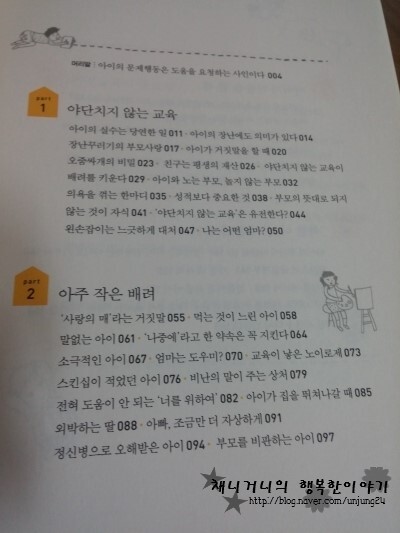 머리말 | 아이의 문제행동은 도움을 요청하는 사인이다 004
part
1
야단치지 않는 교육
아이의 실수는 당연한 일 011 · 아이의 장난에도 의미가 있다 014
장난꾸러기의 부모사랑 017 · 아이가 거짓말을 할 때 020
오줌싸개의 비밀 023 · 친구는 평생의 재산 026 · 야단치지 않는 교육이
배려를 키운다 029 · 아이와 노는 부모, 놀지 않는 부모 032
의욕을 꺾는 한마디 035 · 성적보다 중요한 것 038 · 부모의 뜻대로 되지
않는 것이 자식 041 · '야단치지 않는 교육'은 유전한다? 044
왼손잡이는 느긋하게 대처 047 · 나는 어떤 엄마? 050
part
2
아주 작은 배려
'사랑의 매'라는 거짓말 055 · 먹는 것이 느린 아이 058
말없는 아이 061 · '나중에'라고 한 약속은 꼭 지킨다 064
소극적인 아이 067 · 엄마는 도우미? 070 · 교육이 낳은 노이로제 073
스킨십이 적었던 아이 076 · 비난의 말이 주는 상처 079
전혀 도움이 안 되는 '너를 위하여' 082 · 아이가 집을 뛰쳐나갈 때 085
외박하는 딸 088 · 아빠, 조금만 더 자상하게 091
정신병으로 오해받은 아이 094 · 부모를 비판하는 아이 097
채니거니의 행복한이야기
http://blog.naver.com/unjung24